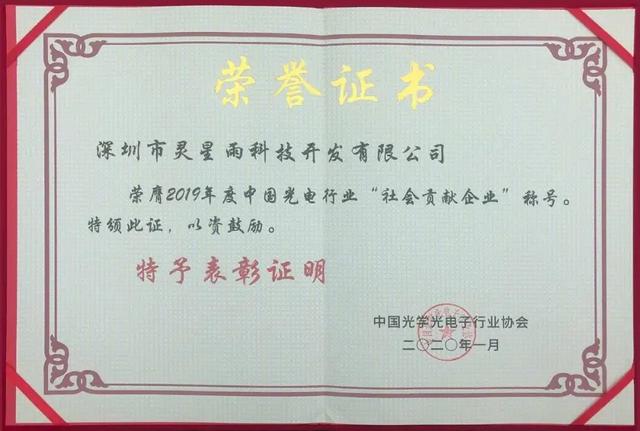 荣誉证书
深圳市灵星雨科技开发有限公司
荣膺2019年度中国光电行业“社会贡献企业”称号。
特颁此证，以资鼓励。
特予表彰证明
中国光学光电子行业协会
二〇二〇年一月